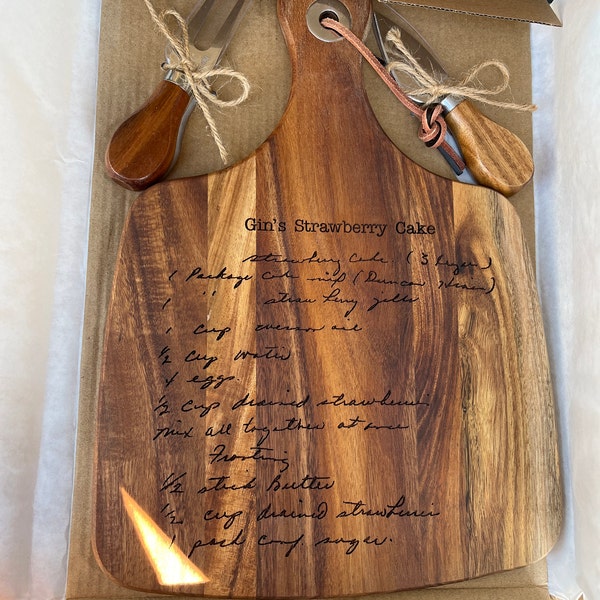 Gin's Strawberry Cake
strawberry cake. (3 layers)
1 Package cake mix (Duncan Hines)
1 " " strawberry jello
1 cup wesson oil
1/2 cup water
4 eggs.
1/2 cup drained strawberries.
mix all together at once
Frosting
1/2 stick Butter
1/2 cup drained strawberries
1 pack conf. sugar.